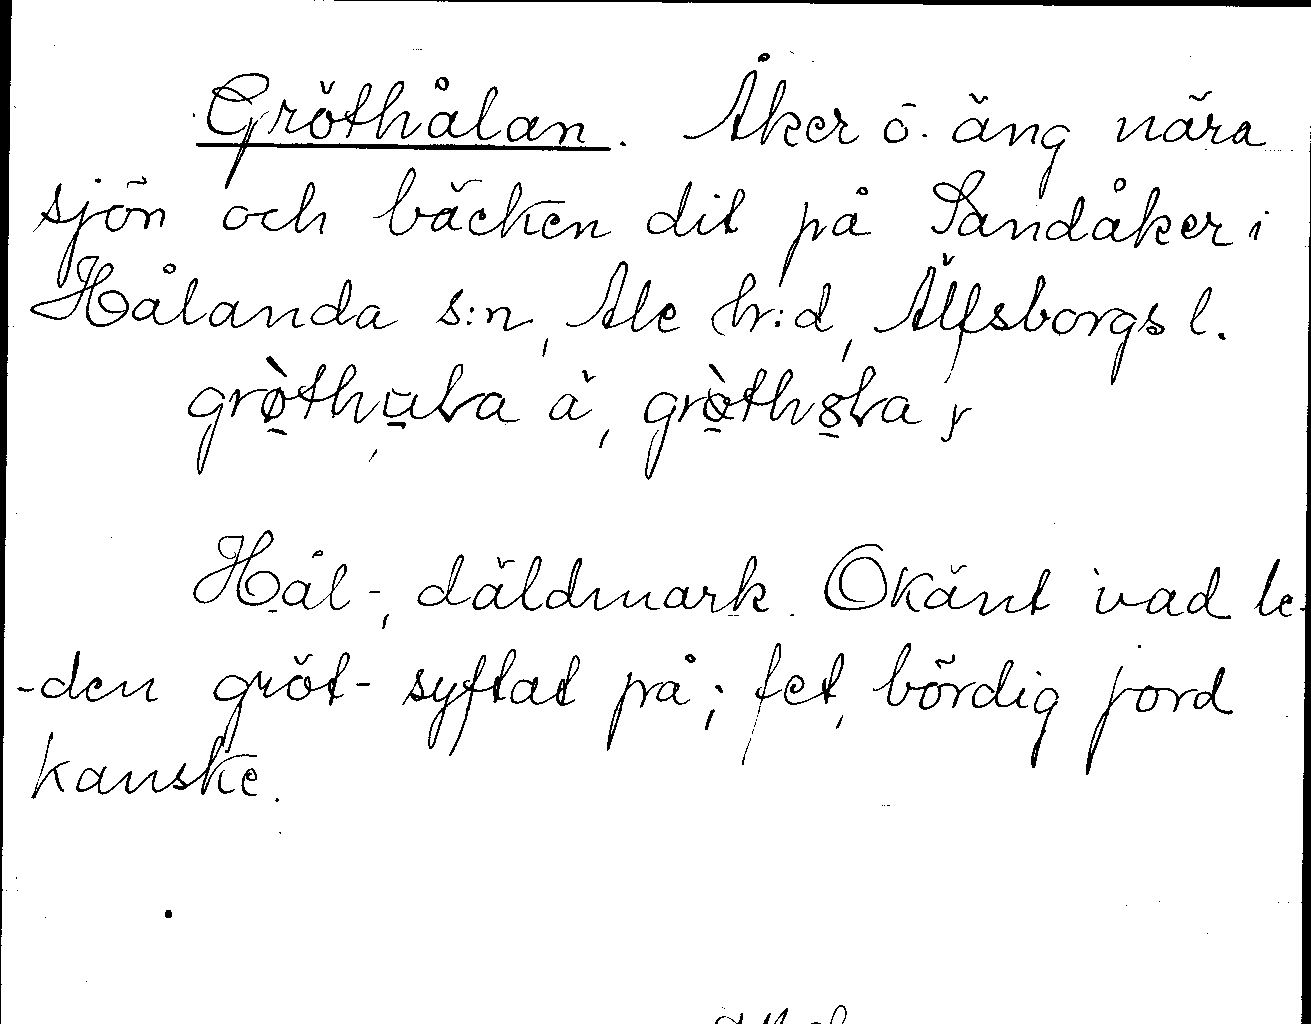 Gröthålan. Åker o. äng nära
sjön och bäcken dit på Sandåker i
Hålanda s:n, Ale h:d, Älfsborgs l.
grø̀thuɩa ä, grø̀thɵɩa y
Hål-, däldmark. Okänt vad le-
-den gröt- syftat på; fet, bördig jord
kanske.